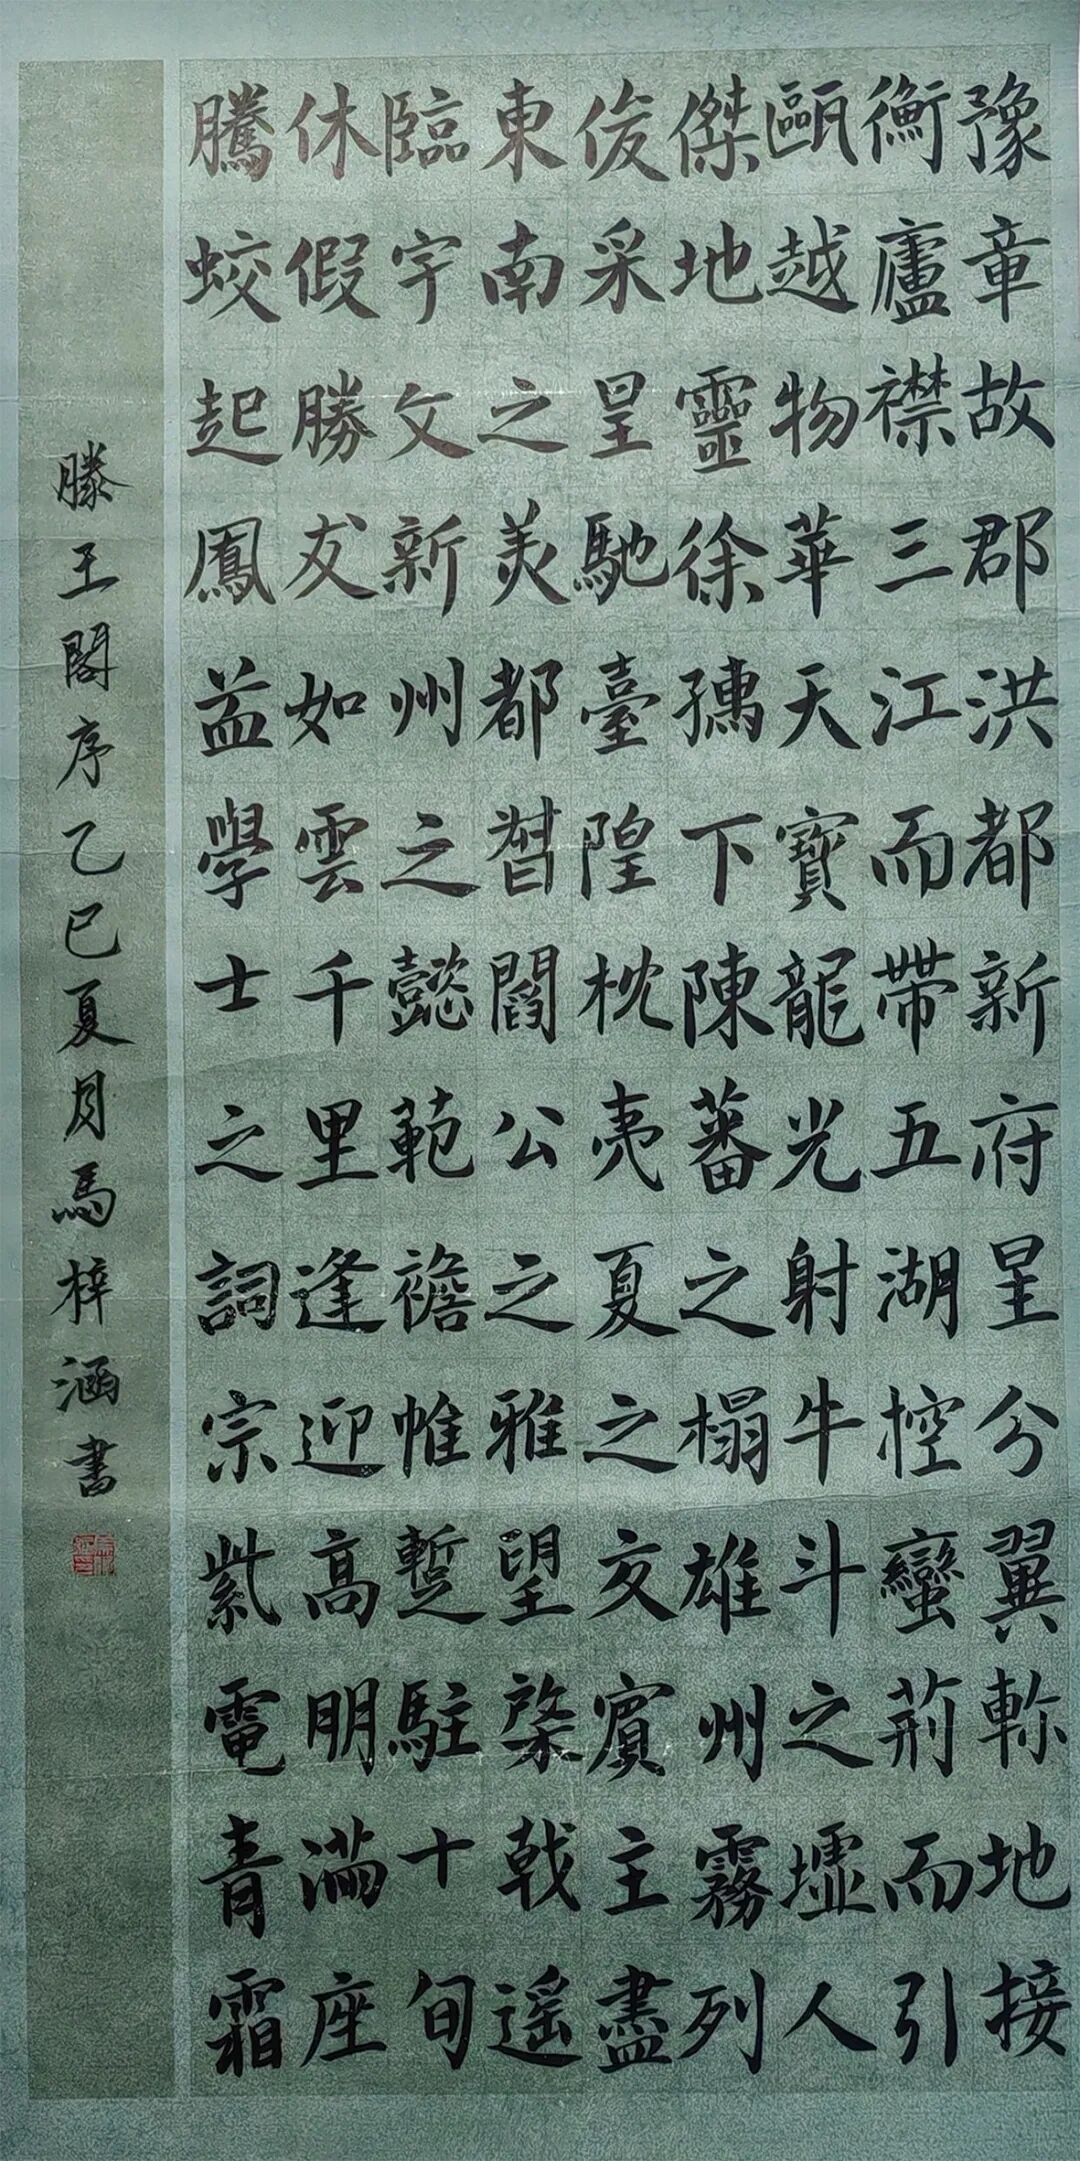 豫章故郡洪都新府星分翼軫地接
衡廬襟三江而帶五湖控蠻荊而引
甌越物華天寶龍光射牛斗之墟人
傑地靈徐孺下陳蕃之榻雄州霧列
俊采星馳臺隍枕夷夏之交賓主盡
東南之美都督閻公之雅望棨戟遙
臨宇文新州之懿範襜帷暫駐十旬
休假勝友如雲千里逢迎高朋滿座
騰蛟起鳳孟學士之詞宗紫電青霜
滕王閣序乙巳夏月馬梓涵書